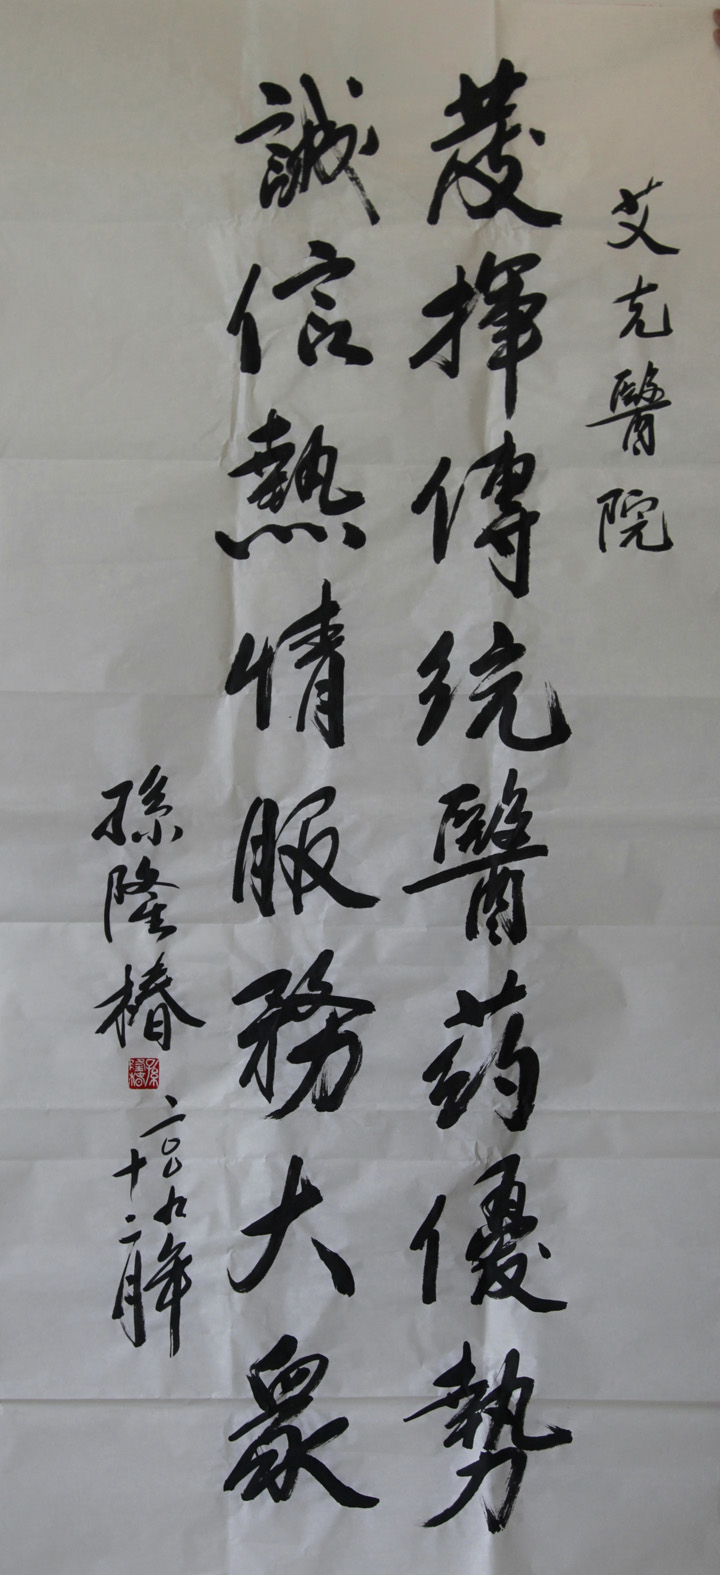 艾克醫院
發揮傳统醫药優勢
誠信熱情服務大衆
孫隆椿
二〇〇九年
十二月